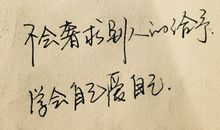 不会奢求别人的给予.
学会自己爱自己.